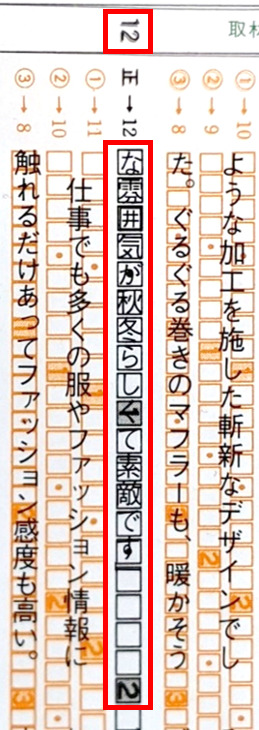 12
取材
① → 10
ような加工を施した斬新なデザインでし
② → 9
③ → 8
た。ぐるぐる巻きのマフラーも、暖かそう
正 → 12
な雰囲気が秋冬らしくて素敵です
2
① → 11
仕事でも多くの服やファッション情報に
② → 10
③ → 8
触れるだけあってファッション感度も高い。